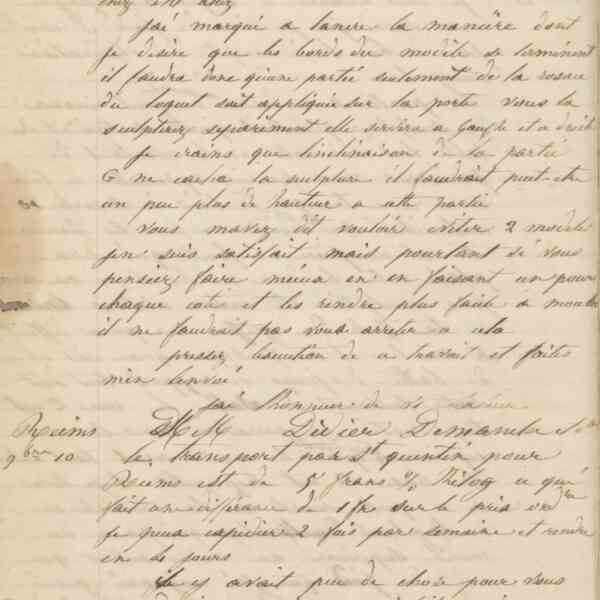 j'ai marqué a lancre la manière dont
je desire que les bords du modèle se terminent
il faudra donc qu'une partie seulement de la rosace
du loquet soit appliquée sur la porte vous la
sculpterez séparement elle servira a Gauche et a droite
je crains que linclinaison de la partie
G ne cache la sculpture il faudrait peut-etre
un peu plus de hauteur a cette partie
vous mavez dit vouloir éviter 2 modèles
jen suis satisfait mais pourtant si vous
pensiez faire mieux en en faisant un pour
chaque coté et les rendre plus facile a mouler
il ne faudrait pas vous arreter a cela
pressez lexecution de ce travail et faites
men lenvoi
jai lhonneur de vs
Reims
9bre 10
MM Didier Demande
le transport par St quentin pour
Reims est de 5 frans % Kilog ce qui
fait une différance de 1 fr sur le prix
je peux expidier 2 fois par semaine et rendre
en jours
il y avait peu de chose pour vous